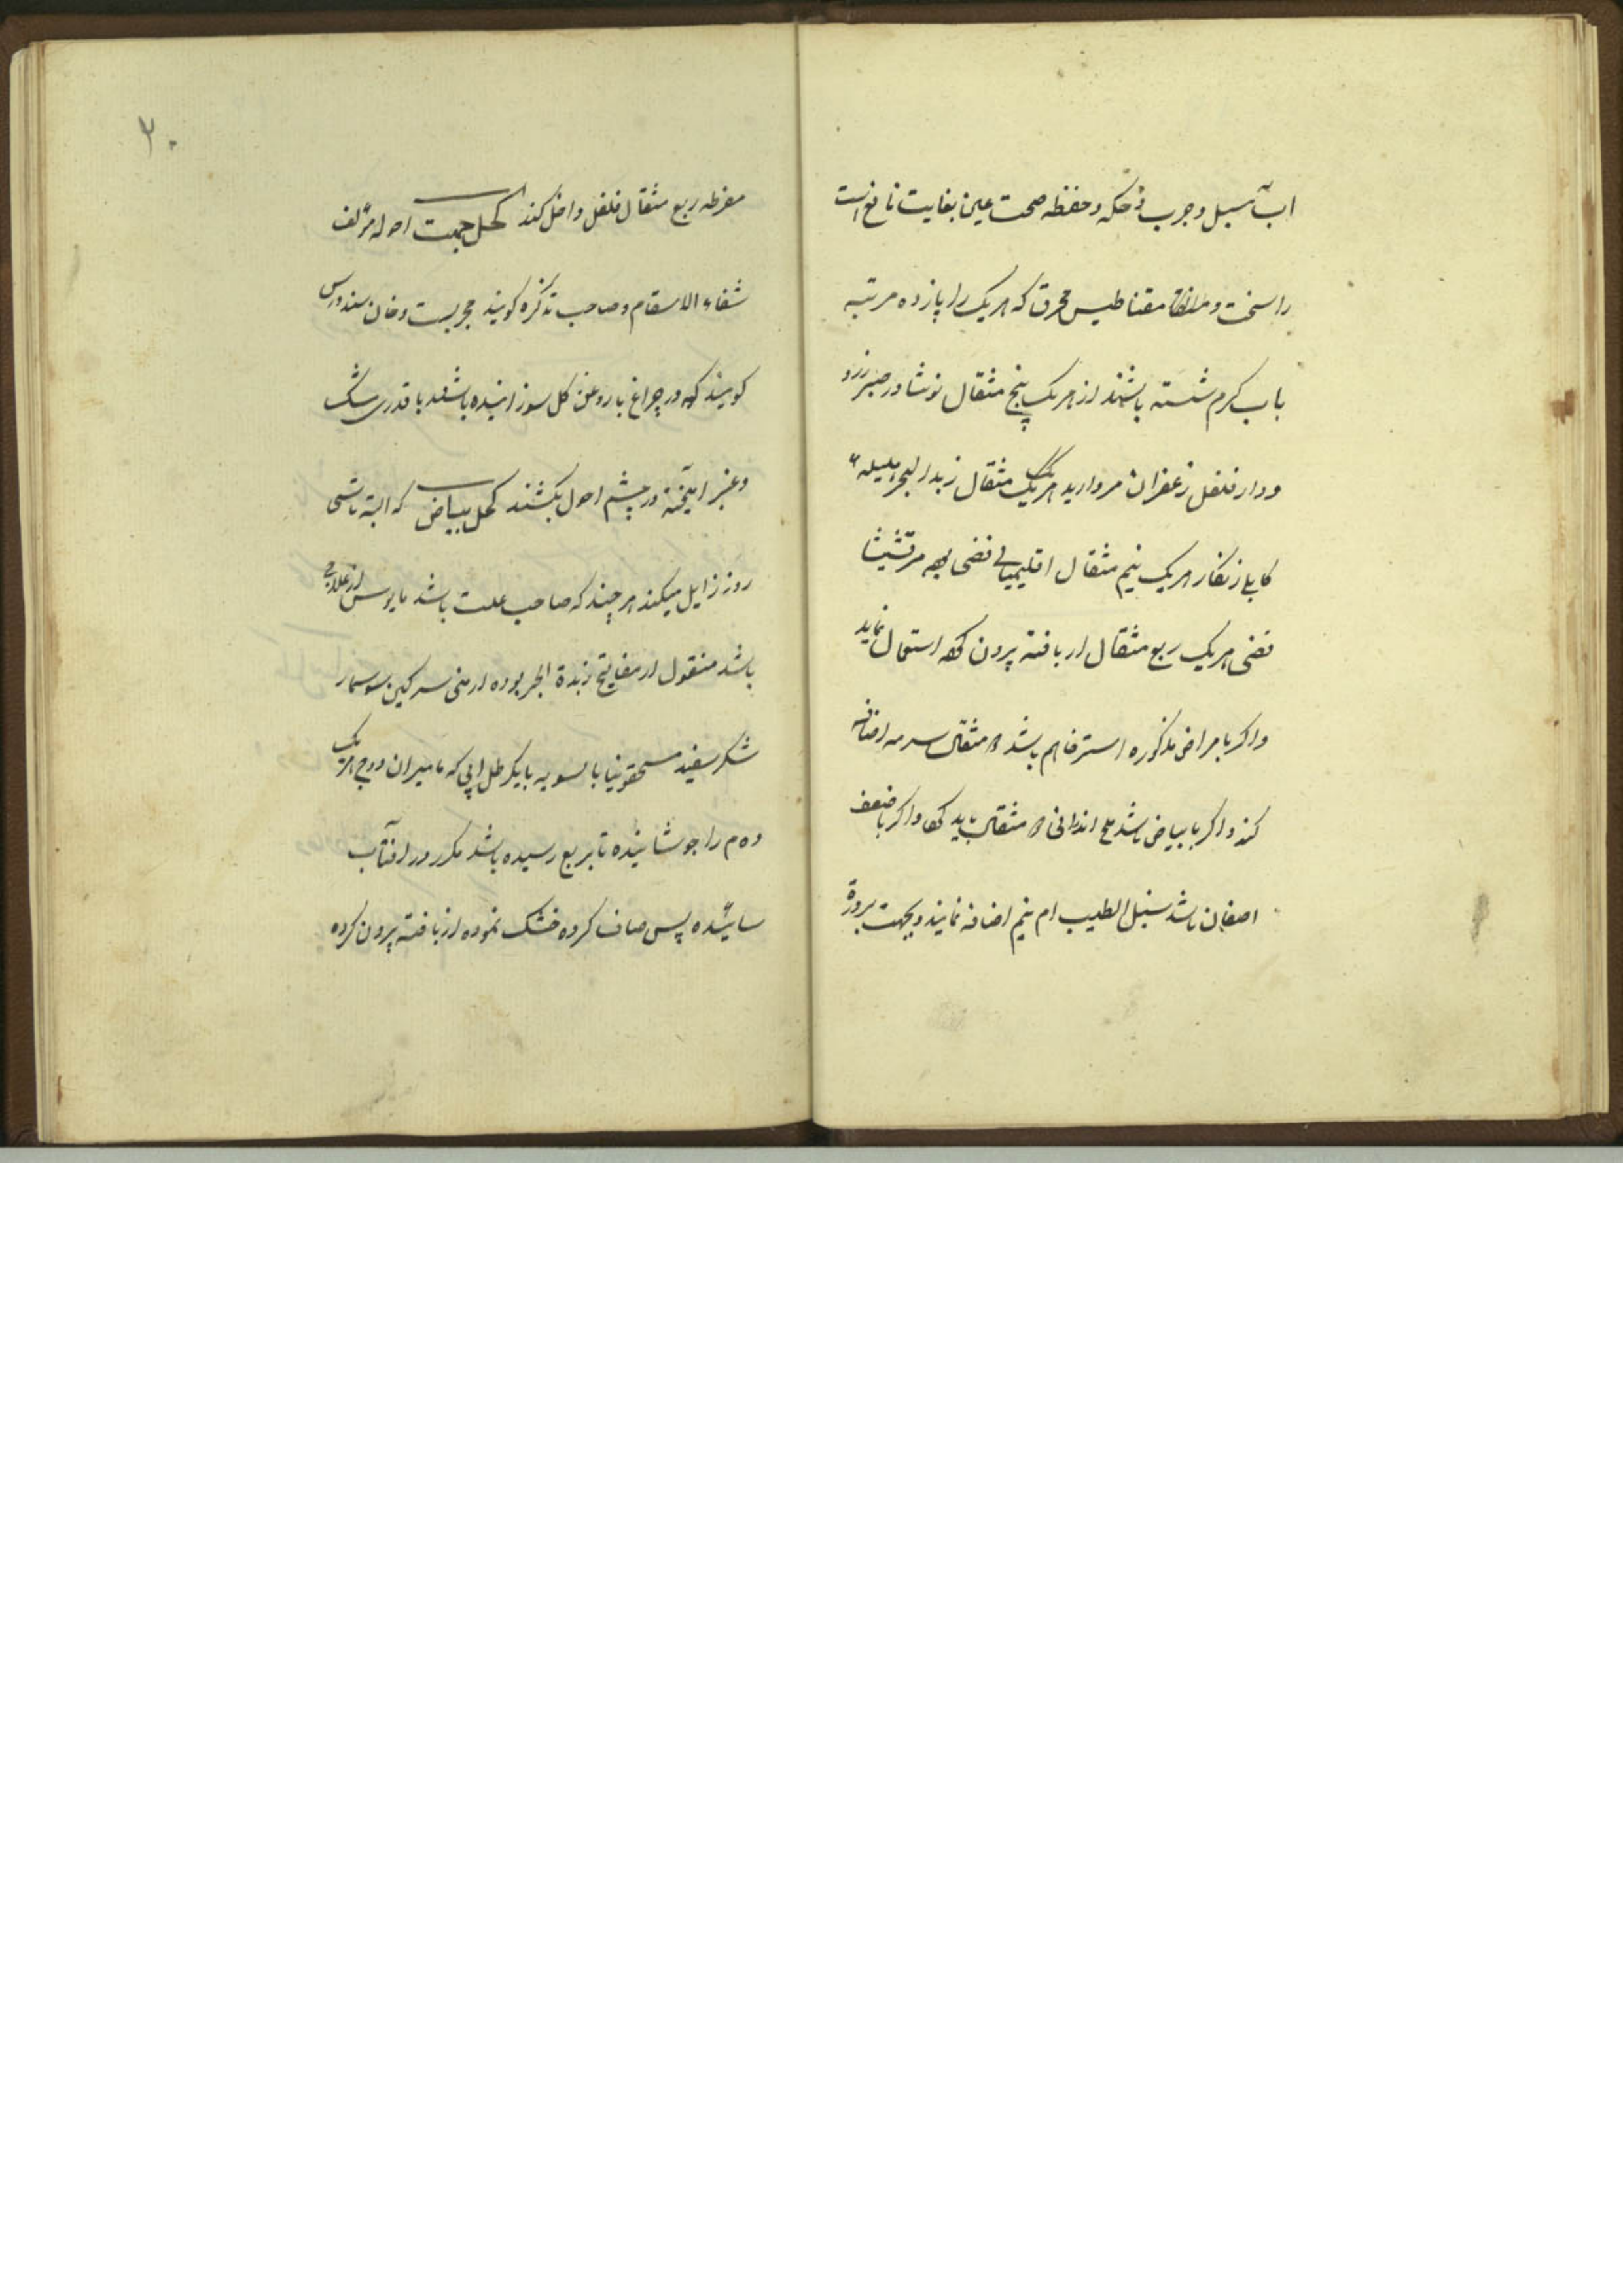 سبل و جرب و حکه و حفظه صحت عین بغایت نافع است
راسخت و مقناطیس محرق که هر یک را پازده مرتبه
باب کرم شسته باشند از هر یک پنج مثقال نوشادر صبر زرد
و دار فلفل زعفران مروارید هر یک مثقال زبد البحر هلیله
کابلی زنکار هر یک نیم مثقال اقلیمیای فضی مرقشیثا
فضی هر یک ربع مثقال از بافته پرون استعمال نماید
و اکر بامراض مذکوره استرخا هم باشد مثقال سرمه اضافه
کند و اکر با بیاض باشد ملح اندرانی مثقال باید و اکر با ضعف
باشد سنبل الطیب نیم اضافه نمایند و بجهت برودة
۲۰
مفرطه ربع مثقال فلفل داخل کند کحل جهت احوله مؤلف
شفاء الاسقام و صاحب تذکره کویند مجربست دخان سندروس
کویند که در چراغ با روغن کل سوزانیده باشند با قدری مشک
و عنبر امیخته در چشم احول بکشند کحل بیاض که البته تا سی
روز زایل میکند هر چند که صاحب علت باشد مایوس از علاج
باشد منقول از مفاتیح زبدة البحر بوره ارمنی سرکین سوسمار
شکر سفید مسحقونیا بالسویه بایکرطل ابی که مامیران و وج هر یک
ده م را جوشانیده تا بربع رسیده باشد مکرر در افتاب
سائیده پس صاف کرده خشک نموده از بافته پرون کرده